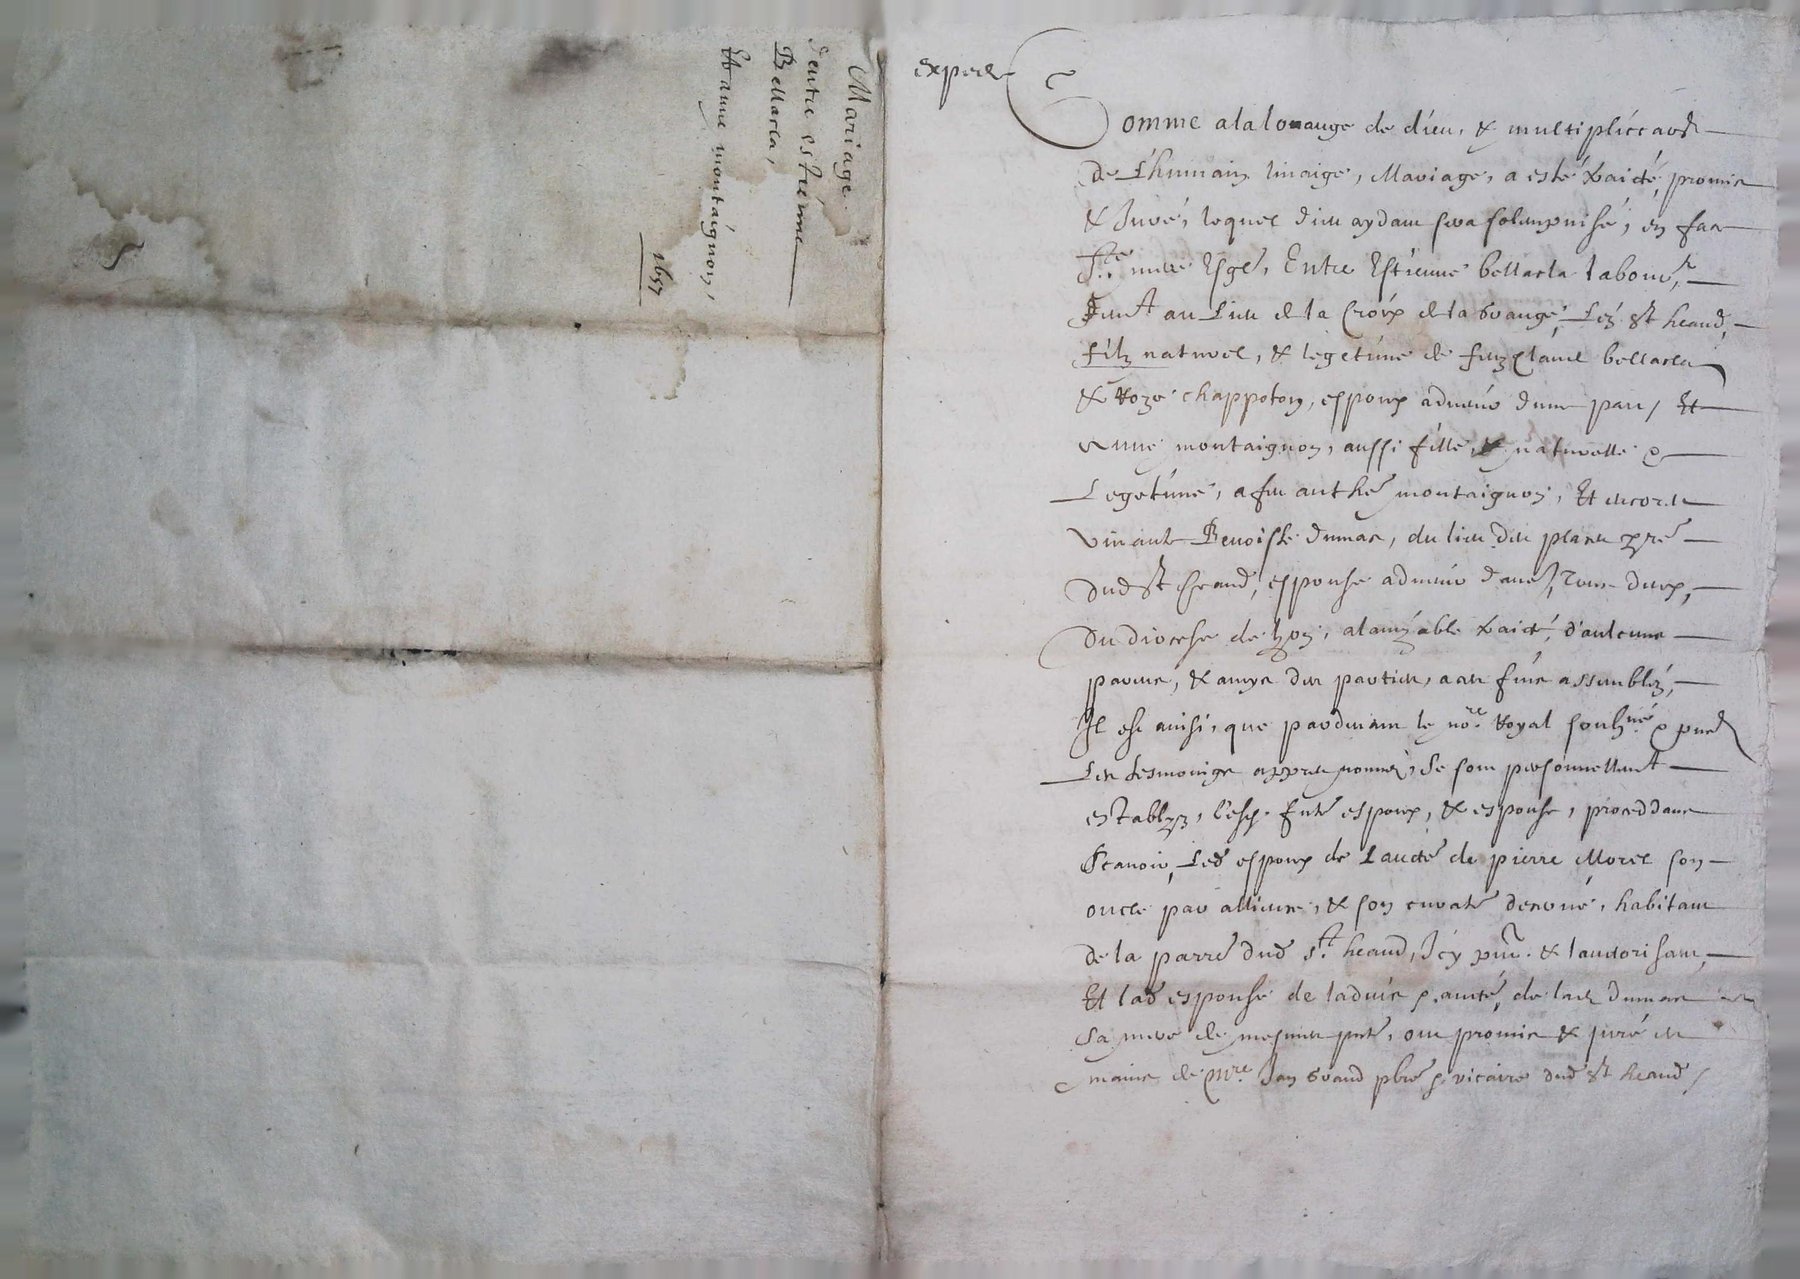 Mariage
dentre estienne
Bellacla,
Et anne montaignon,
1657
exped
Comme a la louange de dieu, & multipliccaon
de L'humain linaige, Mariage, a esté traicté, promis
& Juré, lequel dieu aydant sera solempnisé, en face
Ste mere Esgle, Entre Estienne bellacla labour,
au Lieu de la Croix de la Grange, Lez St heand,
filz naturel, & legetime de feuz bellacla
& chappoton, espoux advenir dune part, Et
Anne montaignon, aussi fille, & naturelle &
Legetime, a feu anthe montaignon, Et encores
vivante Benoiste dumas, du lieu du
dud St heand, espouse advenir dautre, tous deux,
du diocese de Lyon, a lamyable traicté, d'aulcuns
parens, & amys des parties, a ces fins assemblez,
Il est ainsi, que pardevant le nore Royal soubzné & pns
Les tesmoings appres nommez, Se sont personnellement
establyz, lesd. futs espoux, & espouse, proceddans
Scavoir, Led espoux de Laucte de pierre Morel son
oncle par alliance, & son curate decerné, habitant
de la parre dud St heand, Icy pnt. & lauctorisant,
Et lad espouse de ladvis & aucté, de lad dumas
sa mere de mesmes pnte, ont promis & juré es
mains de Mre Jan Grand pbre & vicaire dud St heand,